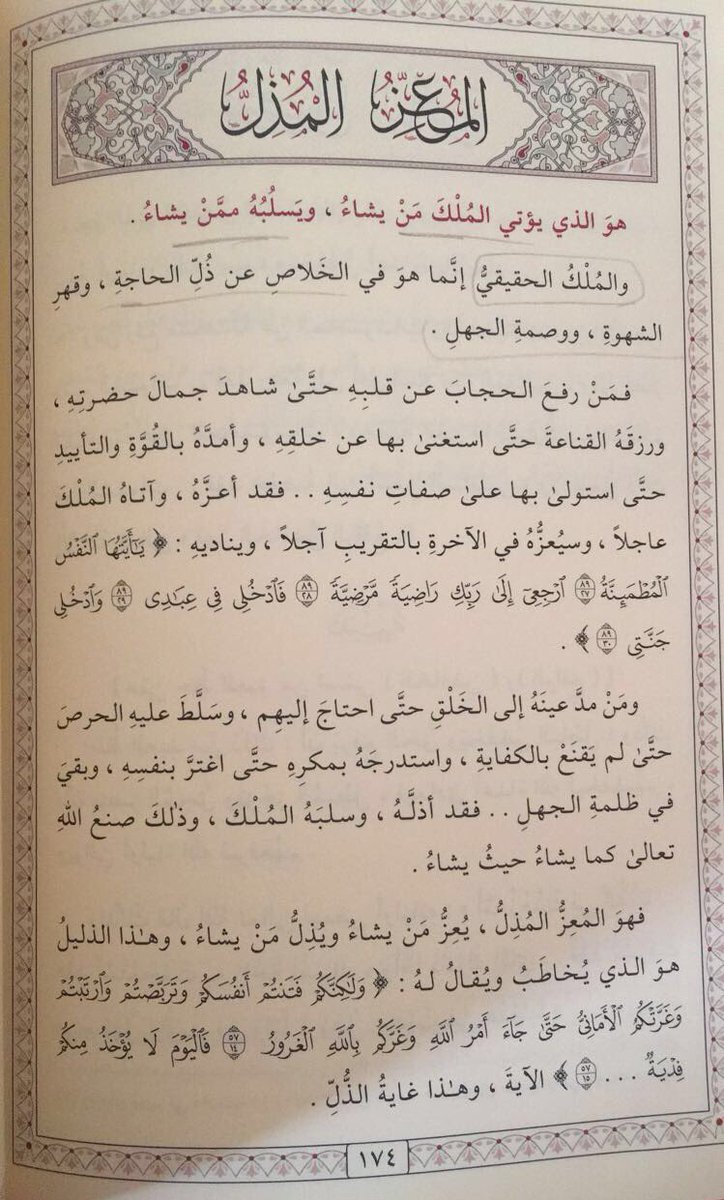 المُعِزُّ المُذِلُّ
هوَ الذي يؤتي المُلْكَ مَنْ يشاءُ ، ويَسلُبُهُ ممَّنْ يشاءُ .
والمُلْكُ الحقيقيُّ إنَّما هوَ في الخَلاصِ عن ذُلِّ الحاجةِ ، وقهرِ
الشهوةِ ، ووصمةِ الجهلِ .
فمَنْ رفعَ الحجابَ عن قلبِهِ حتَّىٰ شاهدَ جمالَ حضرتِهِ ،
ورزقَهُ القناعةَ حتَّى استغنىٰ بها عن خلقِهِ ، وأمدَّهُ بالقُوَّةِ والتأييدِ
حتَّى استولىٰ بها علىٰ صفاتِ نفسِهِ .. فقد أعزَّهُ ، وآتاهُ المُلْكَ
عاجلاً ، وسيُعزُّهُ في الآخرةِ بالتقريبِ آجلاً ، ويناديهِ : ﴿ يَـٰٓأَيَّتُهَا ٱلنَّفْسُ
ٱلْمُطْمَئِنَّةُ ٨٩/٢٧ ٱرْجِعِىٓ إِلَىٰ رَبِّكِ رَاضِيَةً مَّرْضِيَّةً ٨٩/٢٨ فَٱدْخُلِى فِى عِبَـٰدِى ٨٩/٢٩ وَٱدْخُلِى
جَنَّتِى ٨٩/٣٠ ﴾ .
ومَنْ مدَّ عينَهُ إلى الخَلْقِ حتَّى احتاجَ إليهِم ، وسَلَّطَ عليهِ الحرصَ
حتَّىٰ لم يَقنَعْ بالكفايةِ ، واستدرجَهُ بمكرِهِ حتَّى اغترَّ بنفسِهِ ، وبقيَ
في ظلمةِ الجهلِ .. فقد أذلَّهُ ، وسلبَهُ المُلْكَ ، وذٰلكَ صنعُ اللهِ
تعالىٰ كما يشاءُ حيثُ يشاءُ .
فهوَ المُعِزُّ المُذِلُّ ، يُعِزُّ مَنْ يشاءُ ويُذِلُّ مَنْ يشاءُ ، وهـٰذا الذليلُ
هوَ الذي يُخاطَبُ ويُقالُ لهُ : ﴿ وَلَـٰكِنَّكُمْ فَتَنتُمْ أَنفُسَكُمْ وَتَرَبَّصْتُمْ وَٱرْتَبْتُمْ
وَغَرَّتْكُمُ ٱلْأَمَانِىُّ حَتَّىٰ جَآءَ أَمْرُ ٱللَّهِ وَغَرَّكُم بِٱللَّهِ ٱلْغَرُورُ ٥٧/١٤ فَٱلْيَوْمَ لَا يُؤْخَذُ مِنكُمْ
فِدْيَةٌ ... ٥٧/١٥ ﴾ الآيةَ ، وهـٰذا غايةُ الذُّلِّ .
١٧٤